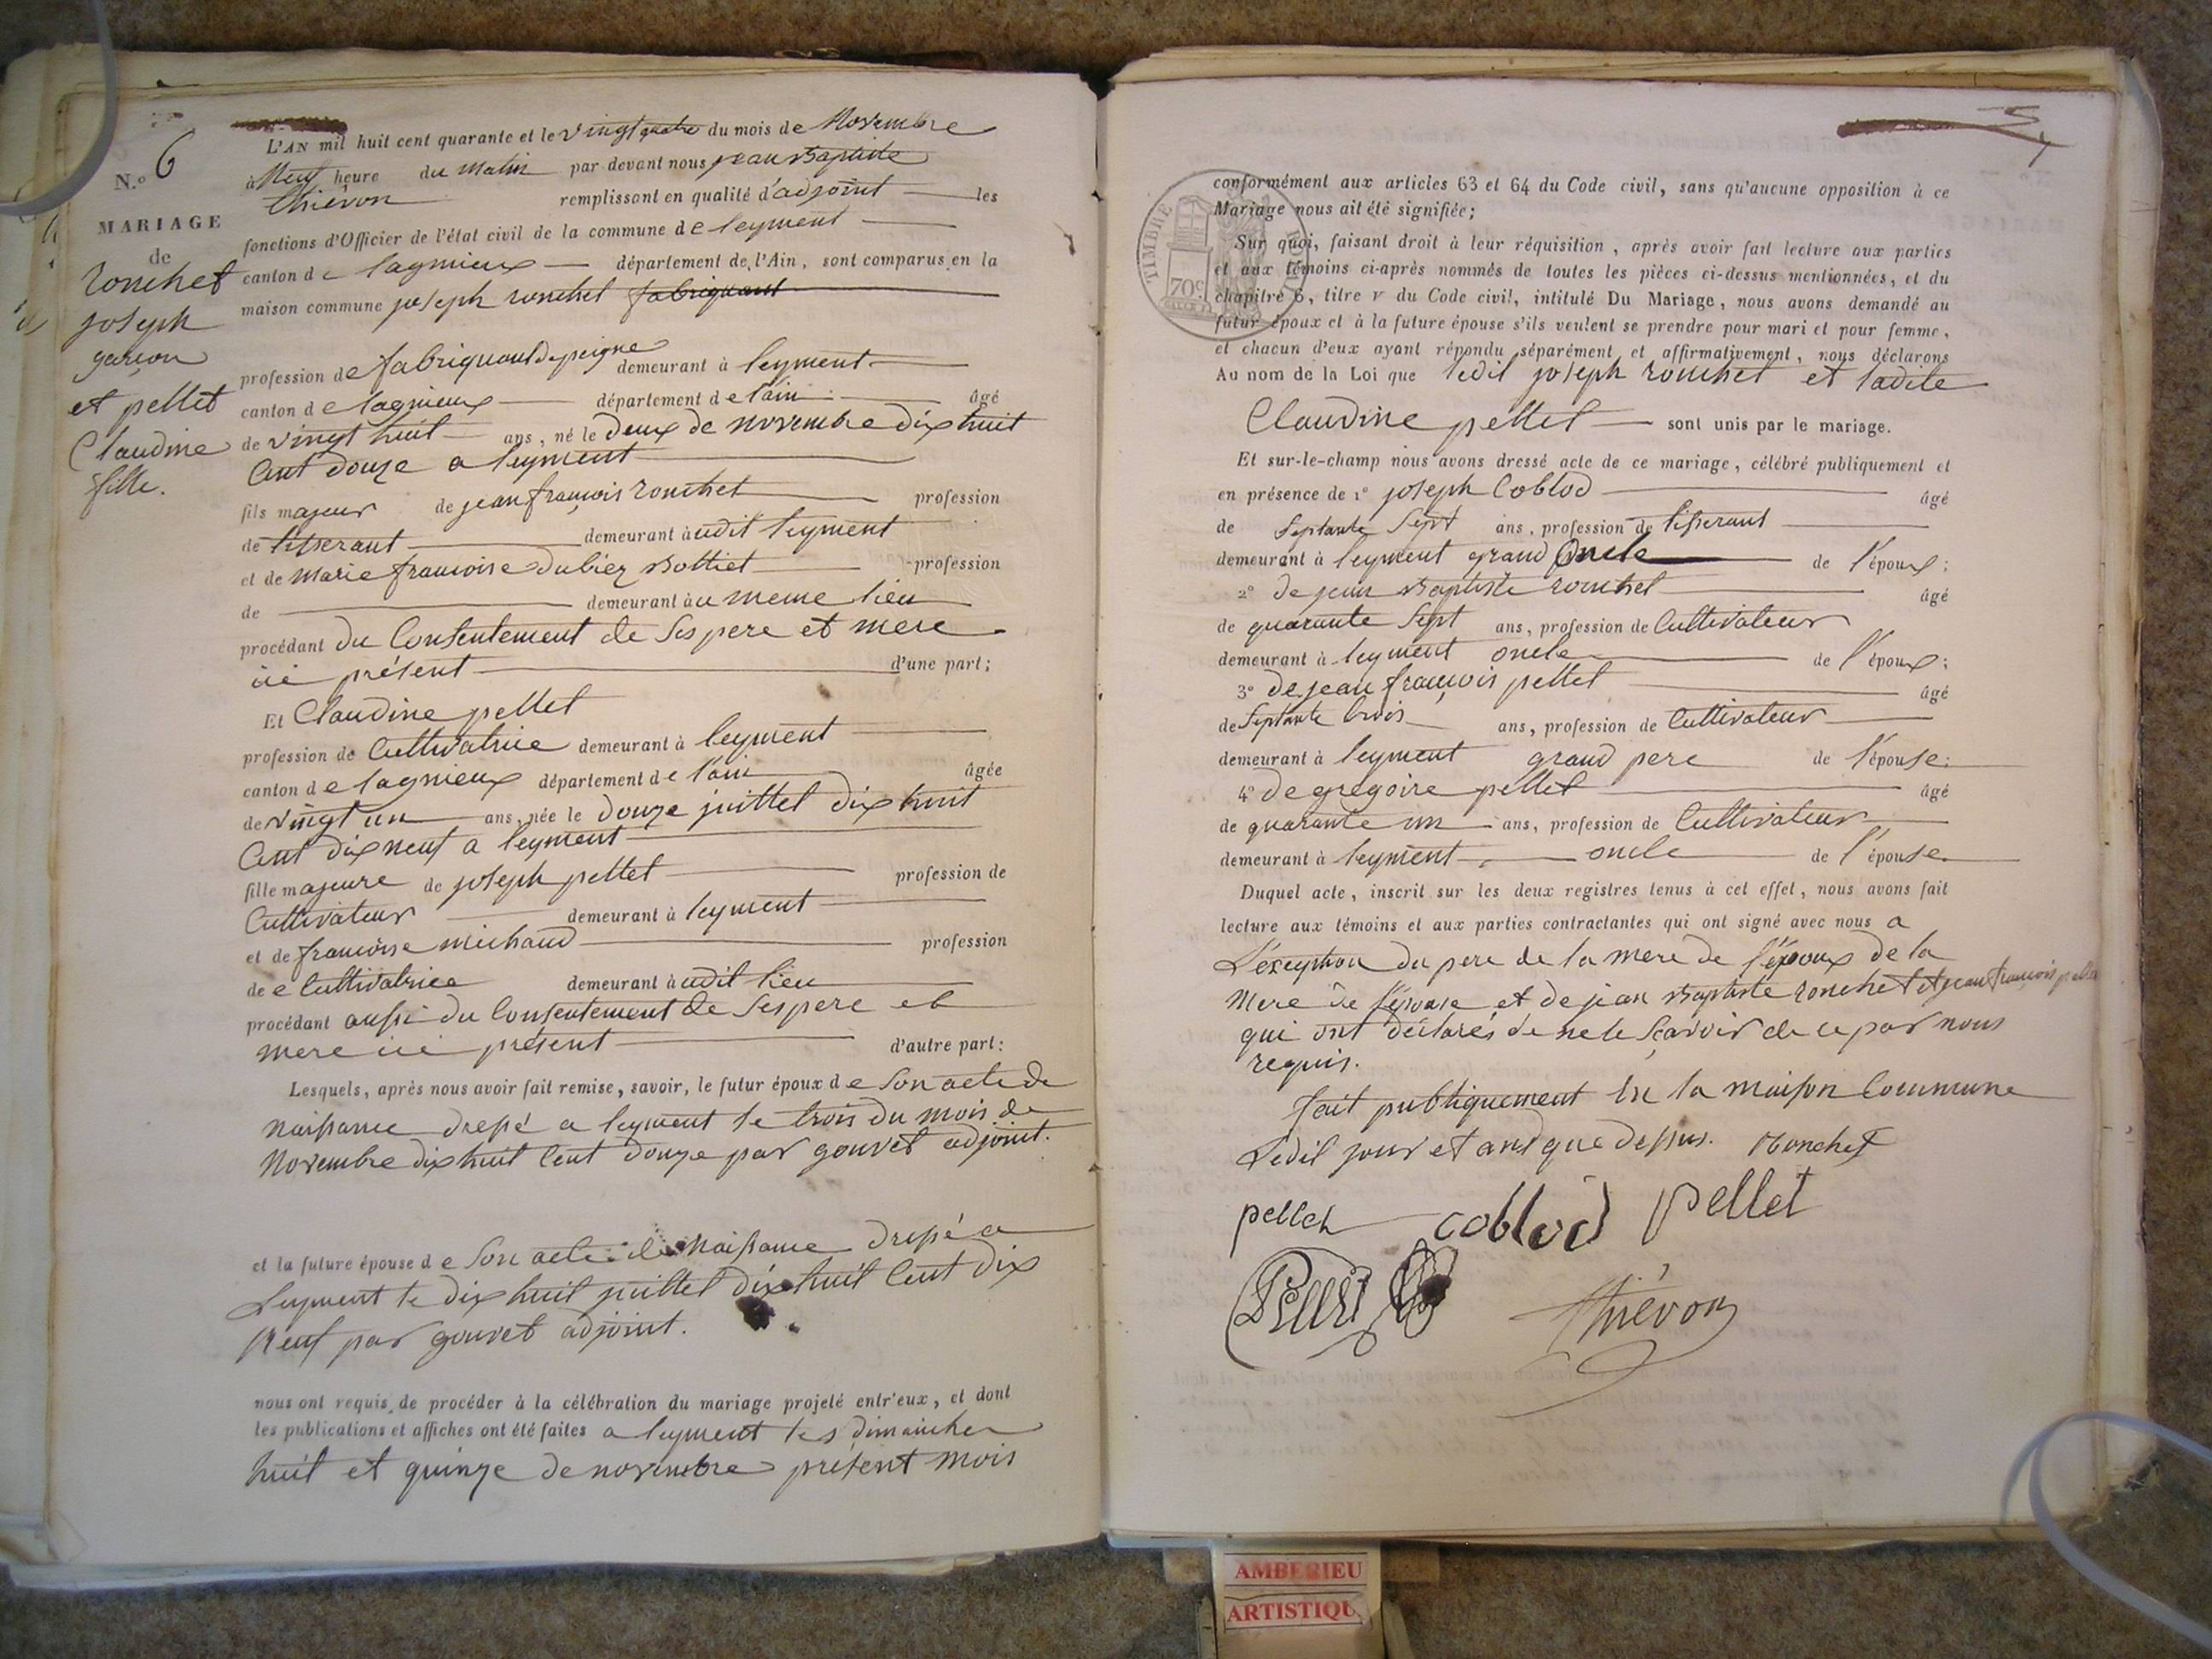 N.o 6
MARIAGE
de
ronchet
joseph
garçon
et pellet
Claudine
fille.
L'AN mil huit cent quarante et le vingt quatre du mois de Novembre
à Neuf heure du Matin par devant nous jean Baptiste
thiévon remplissant en qualité d'adjoint les
fonctions d'Officier de l'état civil de la commune de leyment
canton de lagnieux département de l'Ain, sont comparus en la
maison commune joseph ronchet fabriquant
profession de fabriquant de peigne demeurant à leyment
canton de lagnieux département de l'ain âgé
de vingt huit ans, né le Deux de novembre dix huit
Cent douze a leyment
fils majeur de jean françois ronchet profession
de tisserant demeurant audit leyment
et de marie françoise dubiez Bottiet profession
de demeurant au meme lieu
procédant du Consentement de Ses pere et mere
ici présent d'une part;
Et Claudine pellet
profession de Cultivatrice demeurant à leyment
canton de lagnieux département de l'ain âgée
de vingt un ans, née le douze juillet dix huit
Cent dix neuf a leyment
fille majeure de joseph pellet profession de
Cultivateur demeurant à leyment
et de françoise michaud profession
de e Cultivatrice demeurant audit lieu
procédant aussi du Consentement de Ses pere et
mere ici présent d'autre part:
Lesquels, après nous avoir fait remise, savoir, le futur époux de Son acte de
naissance dressé a leyment le trois du mois de
Novembre dix huit Cent douze par gouvet adjoint.
et la future épouse de Son acte de naissance dressé a
Leyment le dix huit juillet dix huit Cent dix
Neuf par gouvet adjoint.
nous ont requis de procéder à la célébration du mariage projeté entr'eux, et dont
les publications et affiches ont été faites a leyment les dimanches
huit et quinze de novembre présent mois
conformément aux articles 63 et 64 du Code civil, sans qu'aucune opposition à ce
Mariage nous ait été signifiée;
TIMBRE ROYAL
70c
Sur quoi, faisant droit à leur réquisition, après avoir fait lecture aux parties
et aux témoins ci-après nommés de toutes les pièces ci-dessus mentionnées, et du
chapitre 6, titre v du Code civil, intitulé Du Mariage, nous avons demandé au
futur époux et à la future épouse s'ils veulent se prendre pour mari et pour femme,
et chacun d'eux ayant répondu séparément et affirmativement, nous déclarons
Au nom de la Loi que ledit joseph ronchet et ladite
Claudine pellet sont unis par le mariage.
Et sur-le-champ nous avons dressé acte de ce mariage, célébré publiquement et
en présence de 1º joseph Coblod âgé
de Septante Sept ans, profession de tisserant
demeurant à leyment grand Oncle de l'époux;
2º de jean Baptiste ronchet âgé
de quarante Sept ans, profession de Cultivateur
demeurant à leyment oncle de l'époux;
3º de jean françois pellet âgé
de Septante trois ans, profession de Cultivateur
demeurant à leyment grand pere de l'épouse;
4º de grégoire pellet âgé
de quarante un ans, profession de Cultivateur
demeurant à leyment oncle de l'épouse.
Duquel acte, inscrit sur les deux registres tenus à cet effet, nous avons fait
lecture aux témoins et aux parties contractantes qui ont signé avec nous a
L'exception du pere de la mere de l'époux de la
Mere de l'épouse et de jean Baptiste ronchet et jean françois pellet
qui ont déclarés de ne le Sçavoir de ce par nous
requis.
fait publiquement en la maison Commune
Ledit jour et and que dessus. Ronchet
pellet coblod pellet
Pellet
thiévon
AMBERIEU
ARTISTIQU